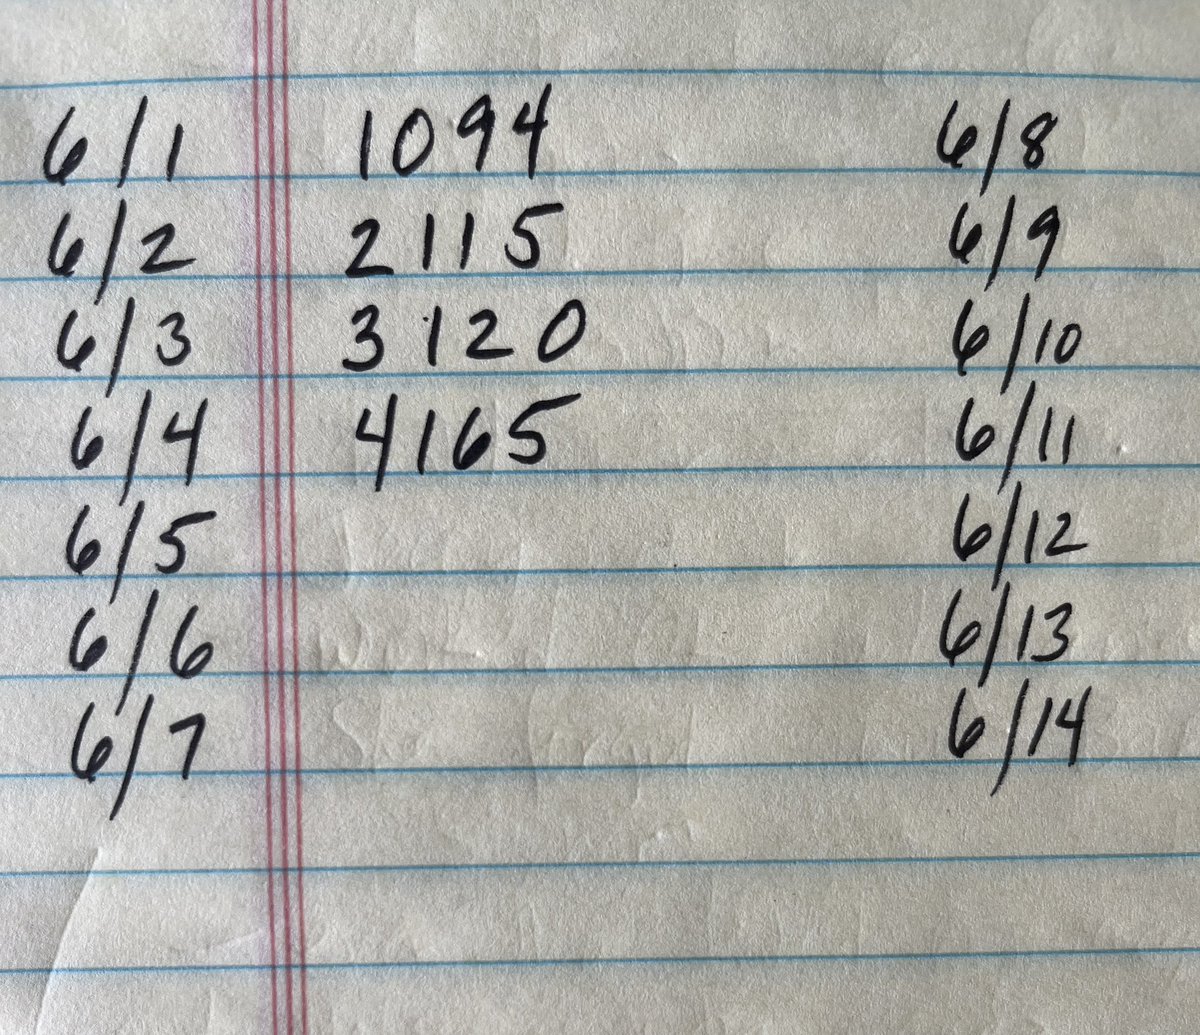 6/1 1094 6/8
6/2 2115 6/9
6/3 3120 6/10
6/4 4165 6/11
6/5 6/12
6/6 6/13
6/7 6/14